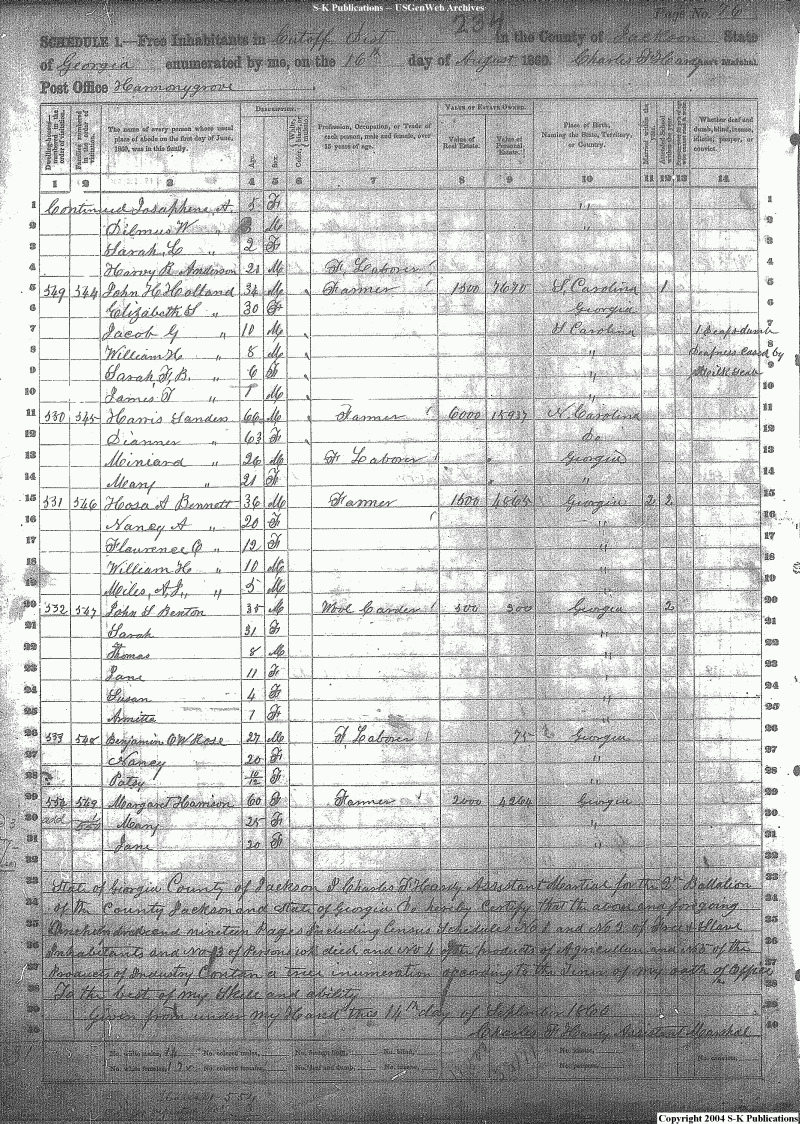 S-K Publications -- USGenWeb Archives
Page No. 76
234
SCHEDULE 1.—Free Inhabitants in Cutoff Dist in the County of Jackson State
of Georgia enumerated by me, on the 16th day of August 1860. Charles F Hardy Ass't Marshal
Post Office Harmonygrove
Dwelling-houses numbered in the order of visitation.
Families numbered in the order of visitation.
The name of every person whose usual place of abode on the first day of June, 1860, was in this family.
DESCRIPTION.
Age.
Sex.
Color, White, black, or mulatto.
Profession, Occupation, or Trade of each person, male and female, over 15 years of age.
VALUE OF ESTATE OWNED.
Value of Real Estate.
Value of Personal Estate.
Place of Birth, Naming the State, Territory, or Country.
Married within the year.
Attended School within the year.
Whether deaf and dumb, blind, insane, idiotic, pauper, or convict.
1 2 3 4 5 6 7 8 9 10 11 12 13 14
1 Continued Josaphene A. 5 F " 1
2 Dilmus W " M " 2
3 Sarah C " 2 F 3
4 Harvy R Anderson 21 M F, Laborer 4
5 529 544 John H Holland 34 M Farmer 1500 7670 S, Carolina 1 5
6 Elizabeth S " 30 F Georgia 6
7 Jacob G " 10 M S Carolina 1 Deaf & dumb 7
8 William H " 8 M " Deafness caused by 8
9 Sarah F, B. " 6 F " 9
10 James T " 1 M " 10
11 530 545 Harris Sanders 66 M Farmer 6000 15937 N. Carolina 11
12 Dianner " 63 F Do 12
13 Miniard " 26 M F Laborer Georgia 13
14 Meany " 21 F " 14
15 531 546 Hosa A Bennett 36 M Farmer 1500 4865 Georgia 2 2 15
16 Nancy A " 20 F " 16
17 Flaurence O " 12 F " 17
18 William H " 10 M " 18
19 Miles, A, J, " 5 M " 19
20 532 547 John S Benton 35 M Wool Carder 500 300 Georgia 2 20
21 Sarah 31 F " 21
22 Thomas 8 M " 22
23 Jane 11 F " 23
24 Susan 4 F " 24
25 Amitta 7 F " 25
26 533 548 Benjamin O W Rose 27 M F, Laborer 75 Georgia 26
27 Nancy 20 F " 27
28 Patsy 10/12 F " 28
29 534 549 Margaret Harrison 60 F Farmer 2000 4264 Georgia 29
30 add Meany 25 F " 30
31 Jane 20 F " 31
32 32
33 State of Georgia County of Jackson I Charles F Hardy Assistant Marshal for the Battalion 33
34 of the County Jackson and State of Georgia Do hereby Certify that the above and forgoing 34
35 One hundred and nineteen Pages Including Census Schedules No 1 and No 2 of Free & Slave 35
36 Inhabitants and No 3 of Persons who died and No 4 of the products of Agriculture and No 5 of the 36
37 Products of Industry Contan a true inumeration according to the Tenor of my oath of Office 37
38 To the best of my Skill and ability 38
39 Given from under my Hand this 14th day of September 1860 39
40 Charles F Hardy Assistant Marshal 40
No. white males, No. colored males, No. foreign born, No. blind,
No. white females, No. colored females, No. deaf and dumb, No. insane,
No. idiotic, No. paupers, No. convicts,
Copyright 2004 S-K Publications